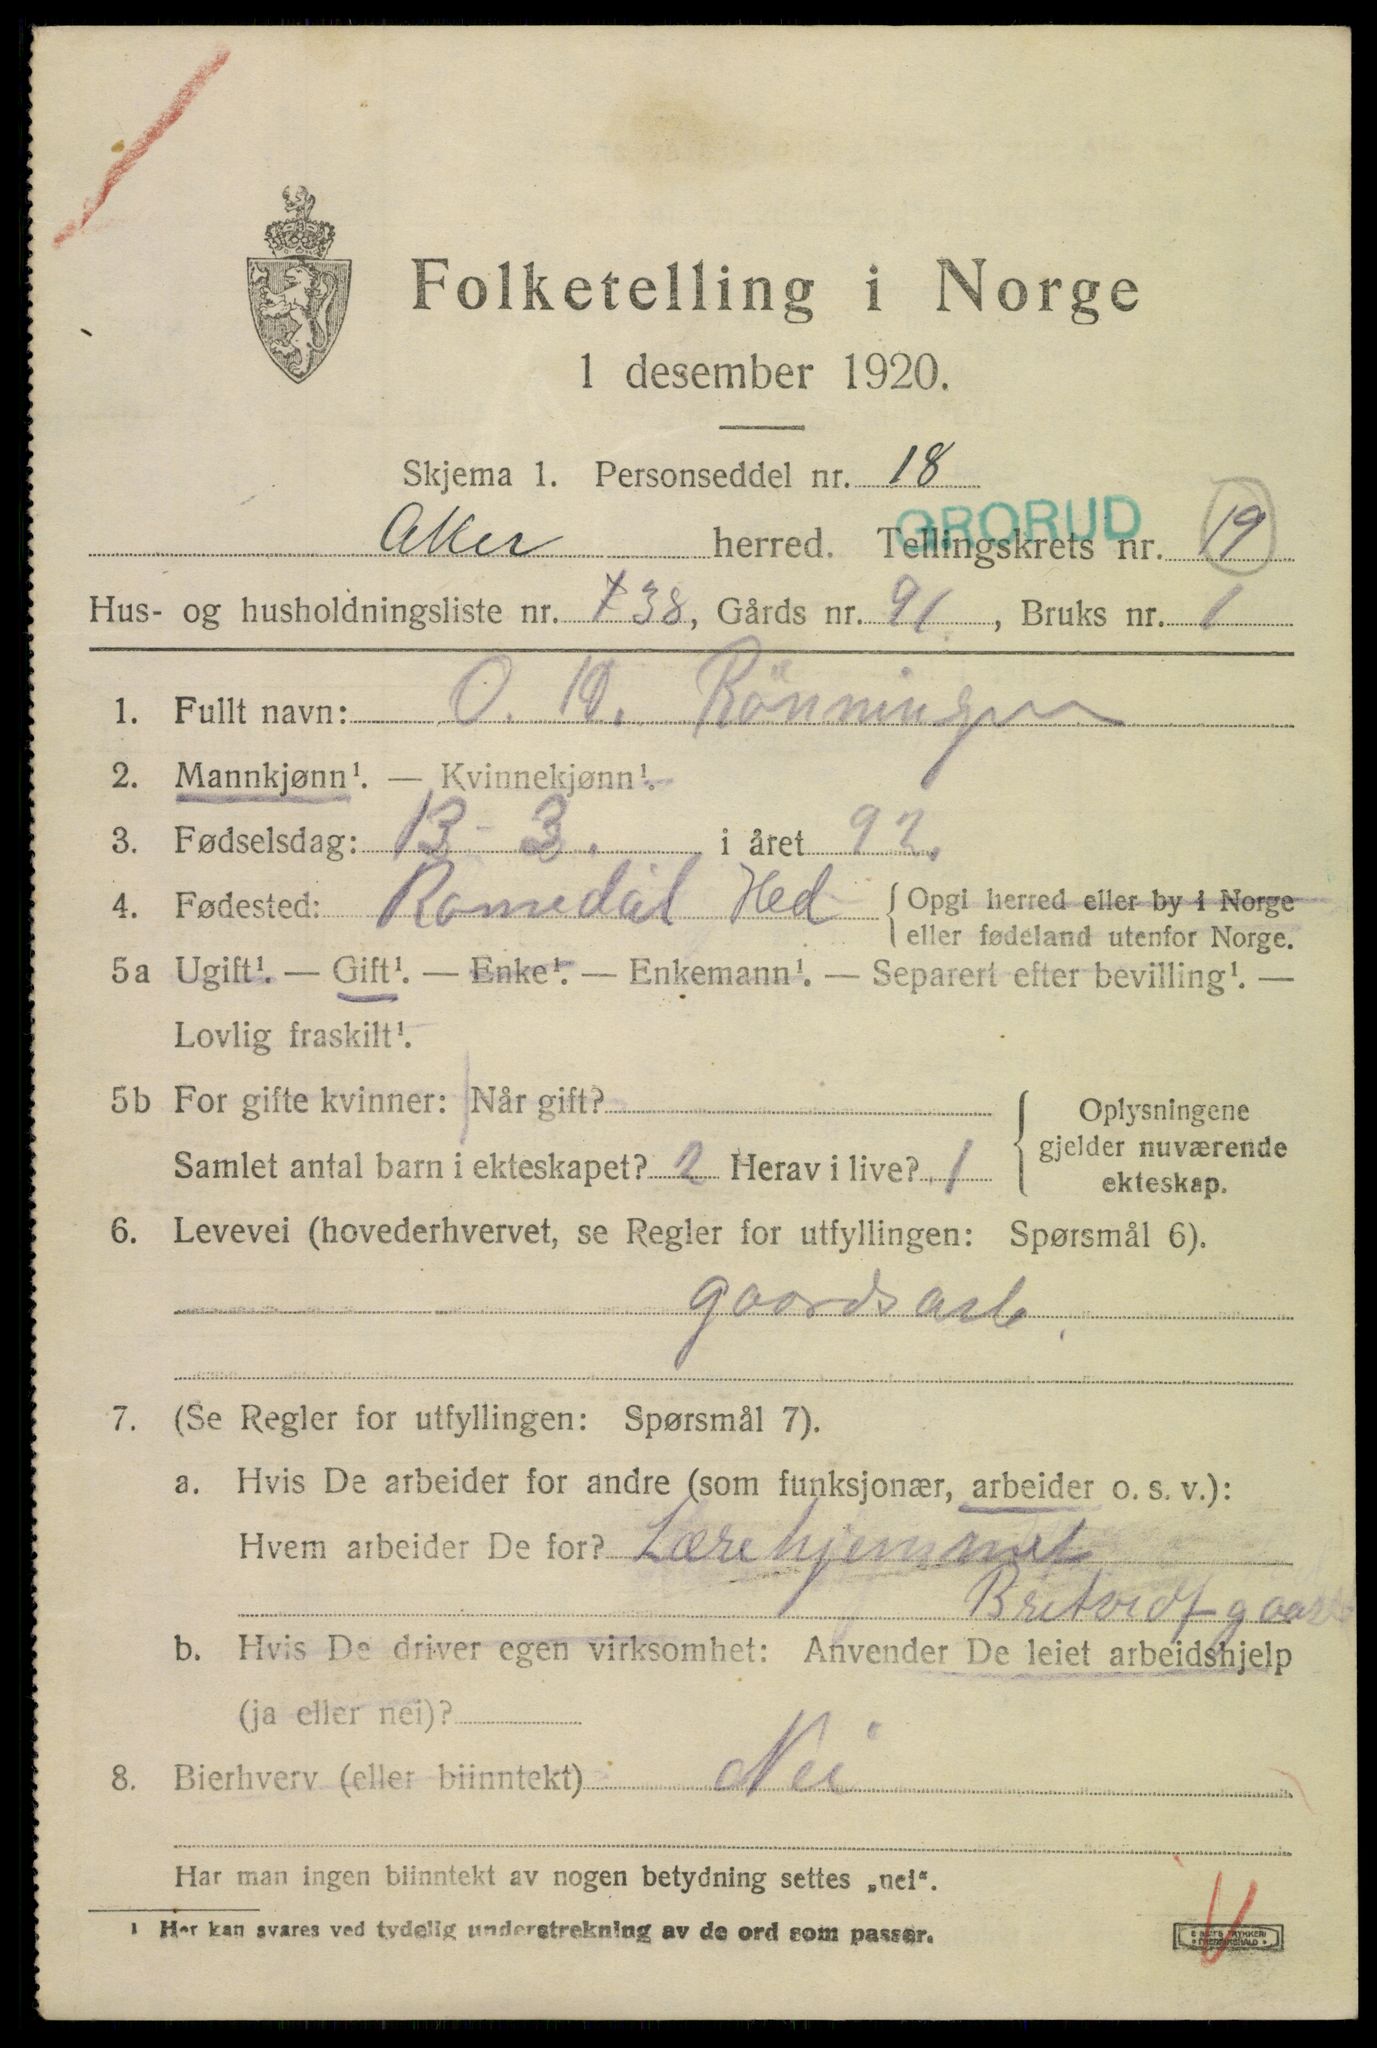 Folketelling i Norge
1 desember 1920.
Skjema 1. Personseddel nr. 18
GRORUD
Aker herred. Tellingskrets nr. 19
Hus- og husholdningsliste nr. 38, Gårds nr. 91, Bruks nr. 1
1. Fullt navn: O. Rönningen
2. Mannkjønn¹. — Kvinnekjønn¹.
3. Fødselsdag: 13 - 3. i året 92.
4. Fødested: Romedal Hed { Opgi herred eller by i Norge
eller fødeland utenfor Norge.
5a Ugift¹. — Gift¹. — Enke¹. — Enkemann¹. — Separert efter bevilling¹. —
Lovlig fraskilt¹.
5b For gifte kvinner: Når gift?
Samlet antal barn i ekteskapet? 2 Herav i live? 1
{ Oplysningene
gjelder nuværende
ekteskap.
6. Levevei (hovederhvervet, se Regler for utfyllingen: Spørsmål 6).
gaardsarb.
7. (Se Regler for utfyllingen: Spørsmål 7).
a. Hvis De arbeider for andre (som funksjonær, arbeider o. s. v.):
Hvem arbeider De for? Lærehjemmet
Bretvedt gaard
b. Hvis De driver egen virksomhet: Anvender De leiet arbeidshjelp
(ja eller nei)?
8. Bierhverv (eller biinntekt) Nei
Har man ingen biinntekt av nogen betydning settes „nei“.
¹ Her kan svares ved tydelig understrekning av de ord som passer.